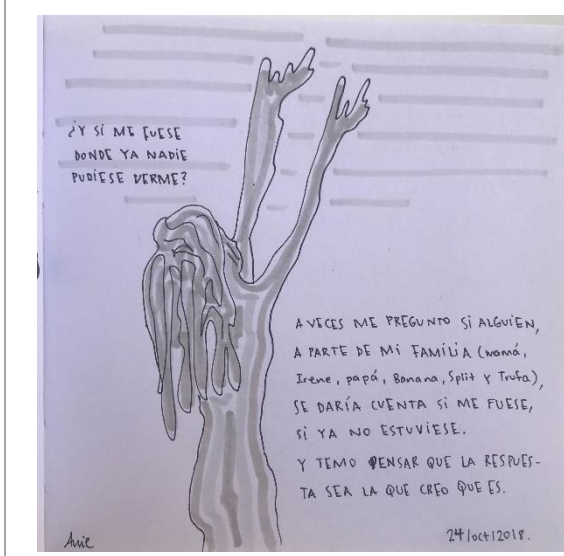 ¿Y SI ME FUESE
DONDE YA NADIE
PUDIESE VERME?
A VECES ME PREGUNTO SI ALGUIEN,
A PARTE DE MI FAMILIA (mamá,
Irene, papá, Banana, Split y Trufa),
SE DARÍA CUENTA SI ME FUESE,
SI YA NO ESTUVIESE.
Y TEMO PENSAR QUE LA RESPUES-
TA SEA LA QUE CREO QUE ES.
24/oct/2018.